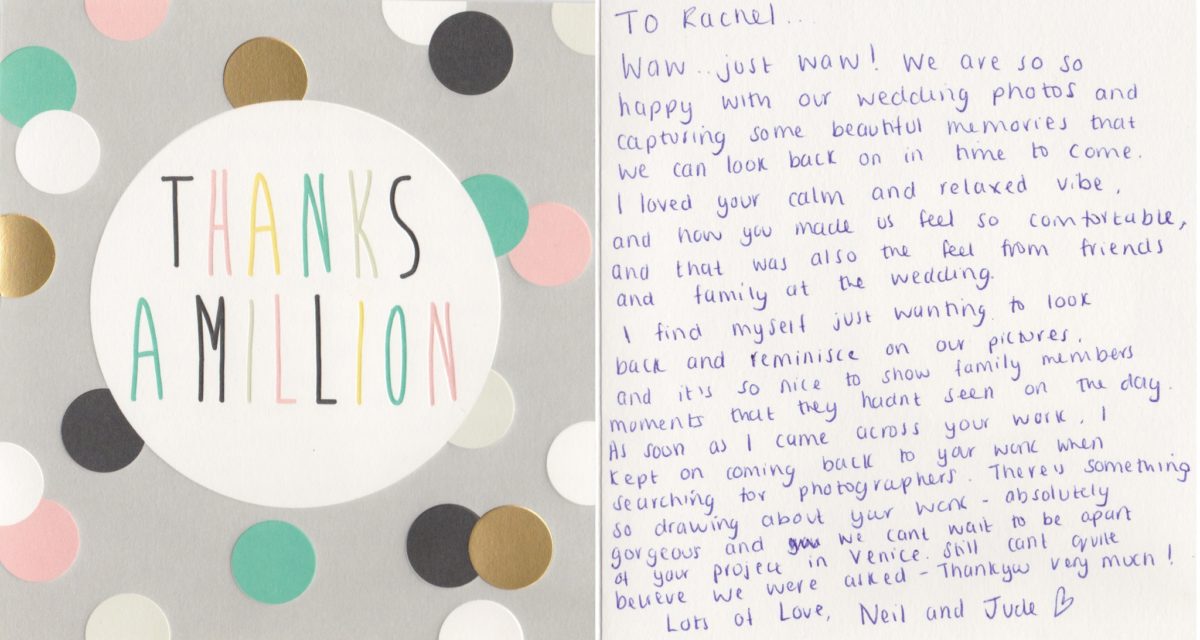 THANKS
A MILLION
To Rachel...
Waw.. just waw! We are so so
happy with our wedding photos and
capturing some beautiful memories that
we can look back on in time to come.
I loved your calm and relaxed vibe,
and how you made us feel so comfortable,
and that was also the feel from friends
and family at the wedding.
I find myself just wanting to look
back and reminisce on our pictures,
and it's so nice to show family members
moments that they hadnt seen on the day.
As soon as I came across your work, I
kept on coming back to your work when
searching for photographers. Theres something
so drawing about your work - absolutely
gorgeous and we cant wait to be apart
of your project in Venice. Still cant quite
believe we were asked - Thankyou very much!
Lots of Love, Neil and Jude